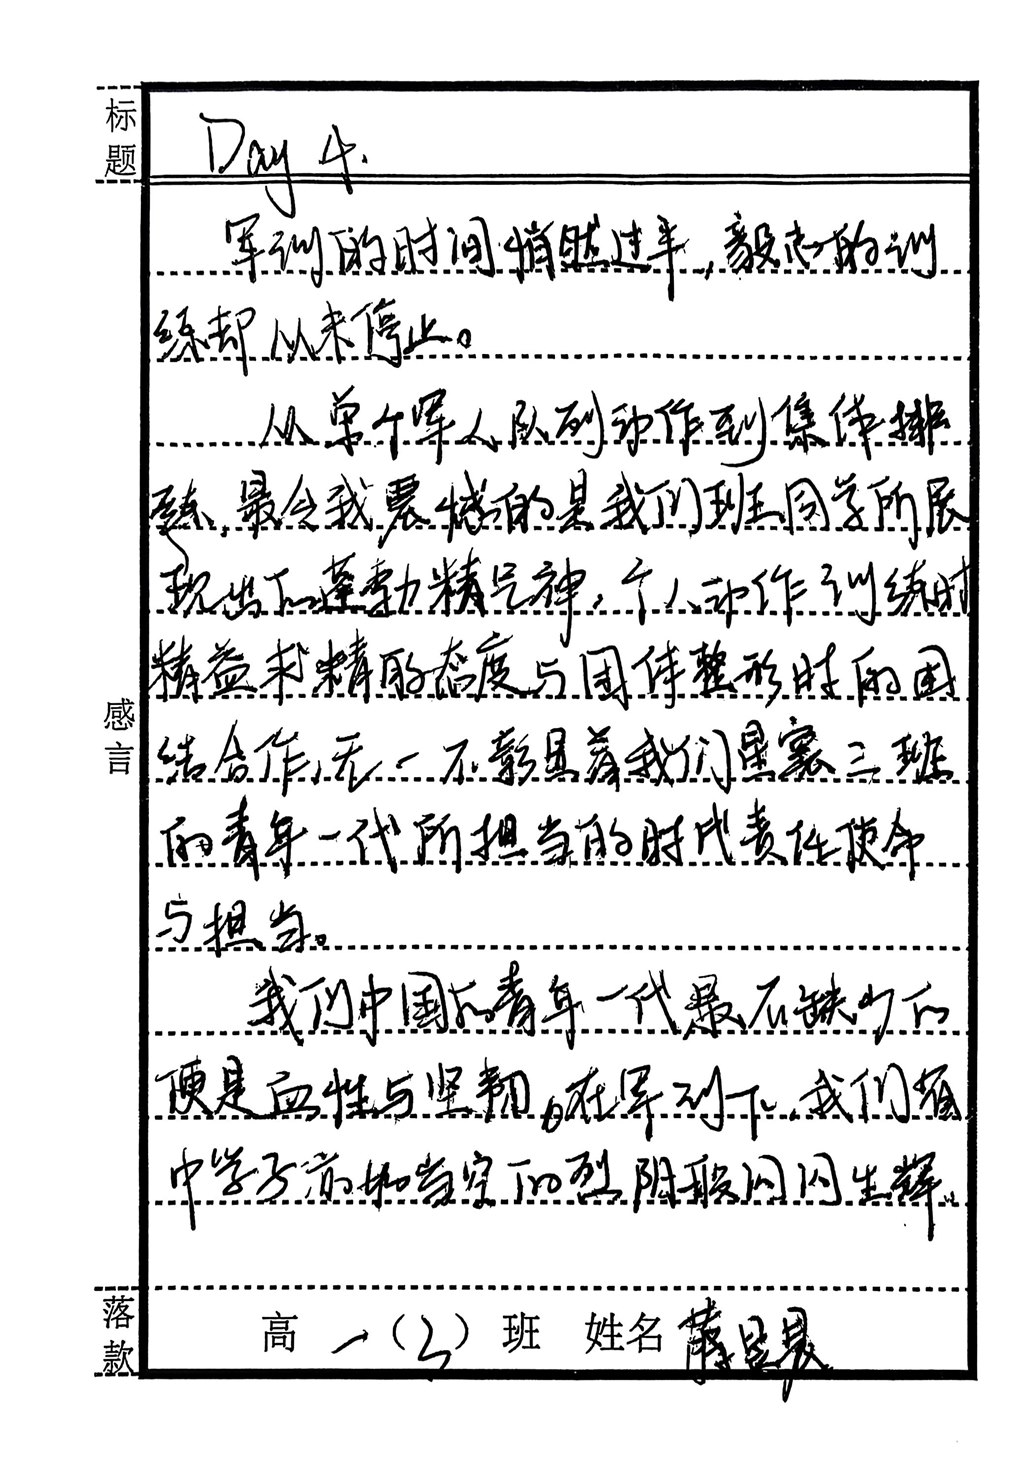 标题
Day 4.
军训的时间悄然过半，毅志的训
练却从未停止。
从单个军人队列动作到集体排
练，最令我震撼的是我们班同学所展
现出的蓬勃精气神，个人动作训练时
精益求精的态度与团体整形时的团
结合作，无一不彰显着我们星寰三班
的青年一代所担当的时代责任使命
与担当。
感言
我们中国的青年一代最不缺少的
便是血性与坚韧。在军训下，我们
中学子 当空的烈阳般闪闪生辉。
落款
高一（3）班 姓名